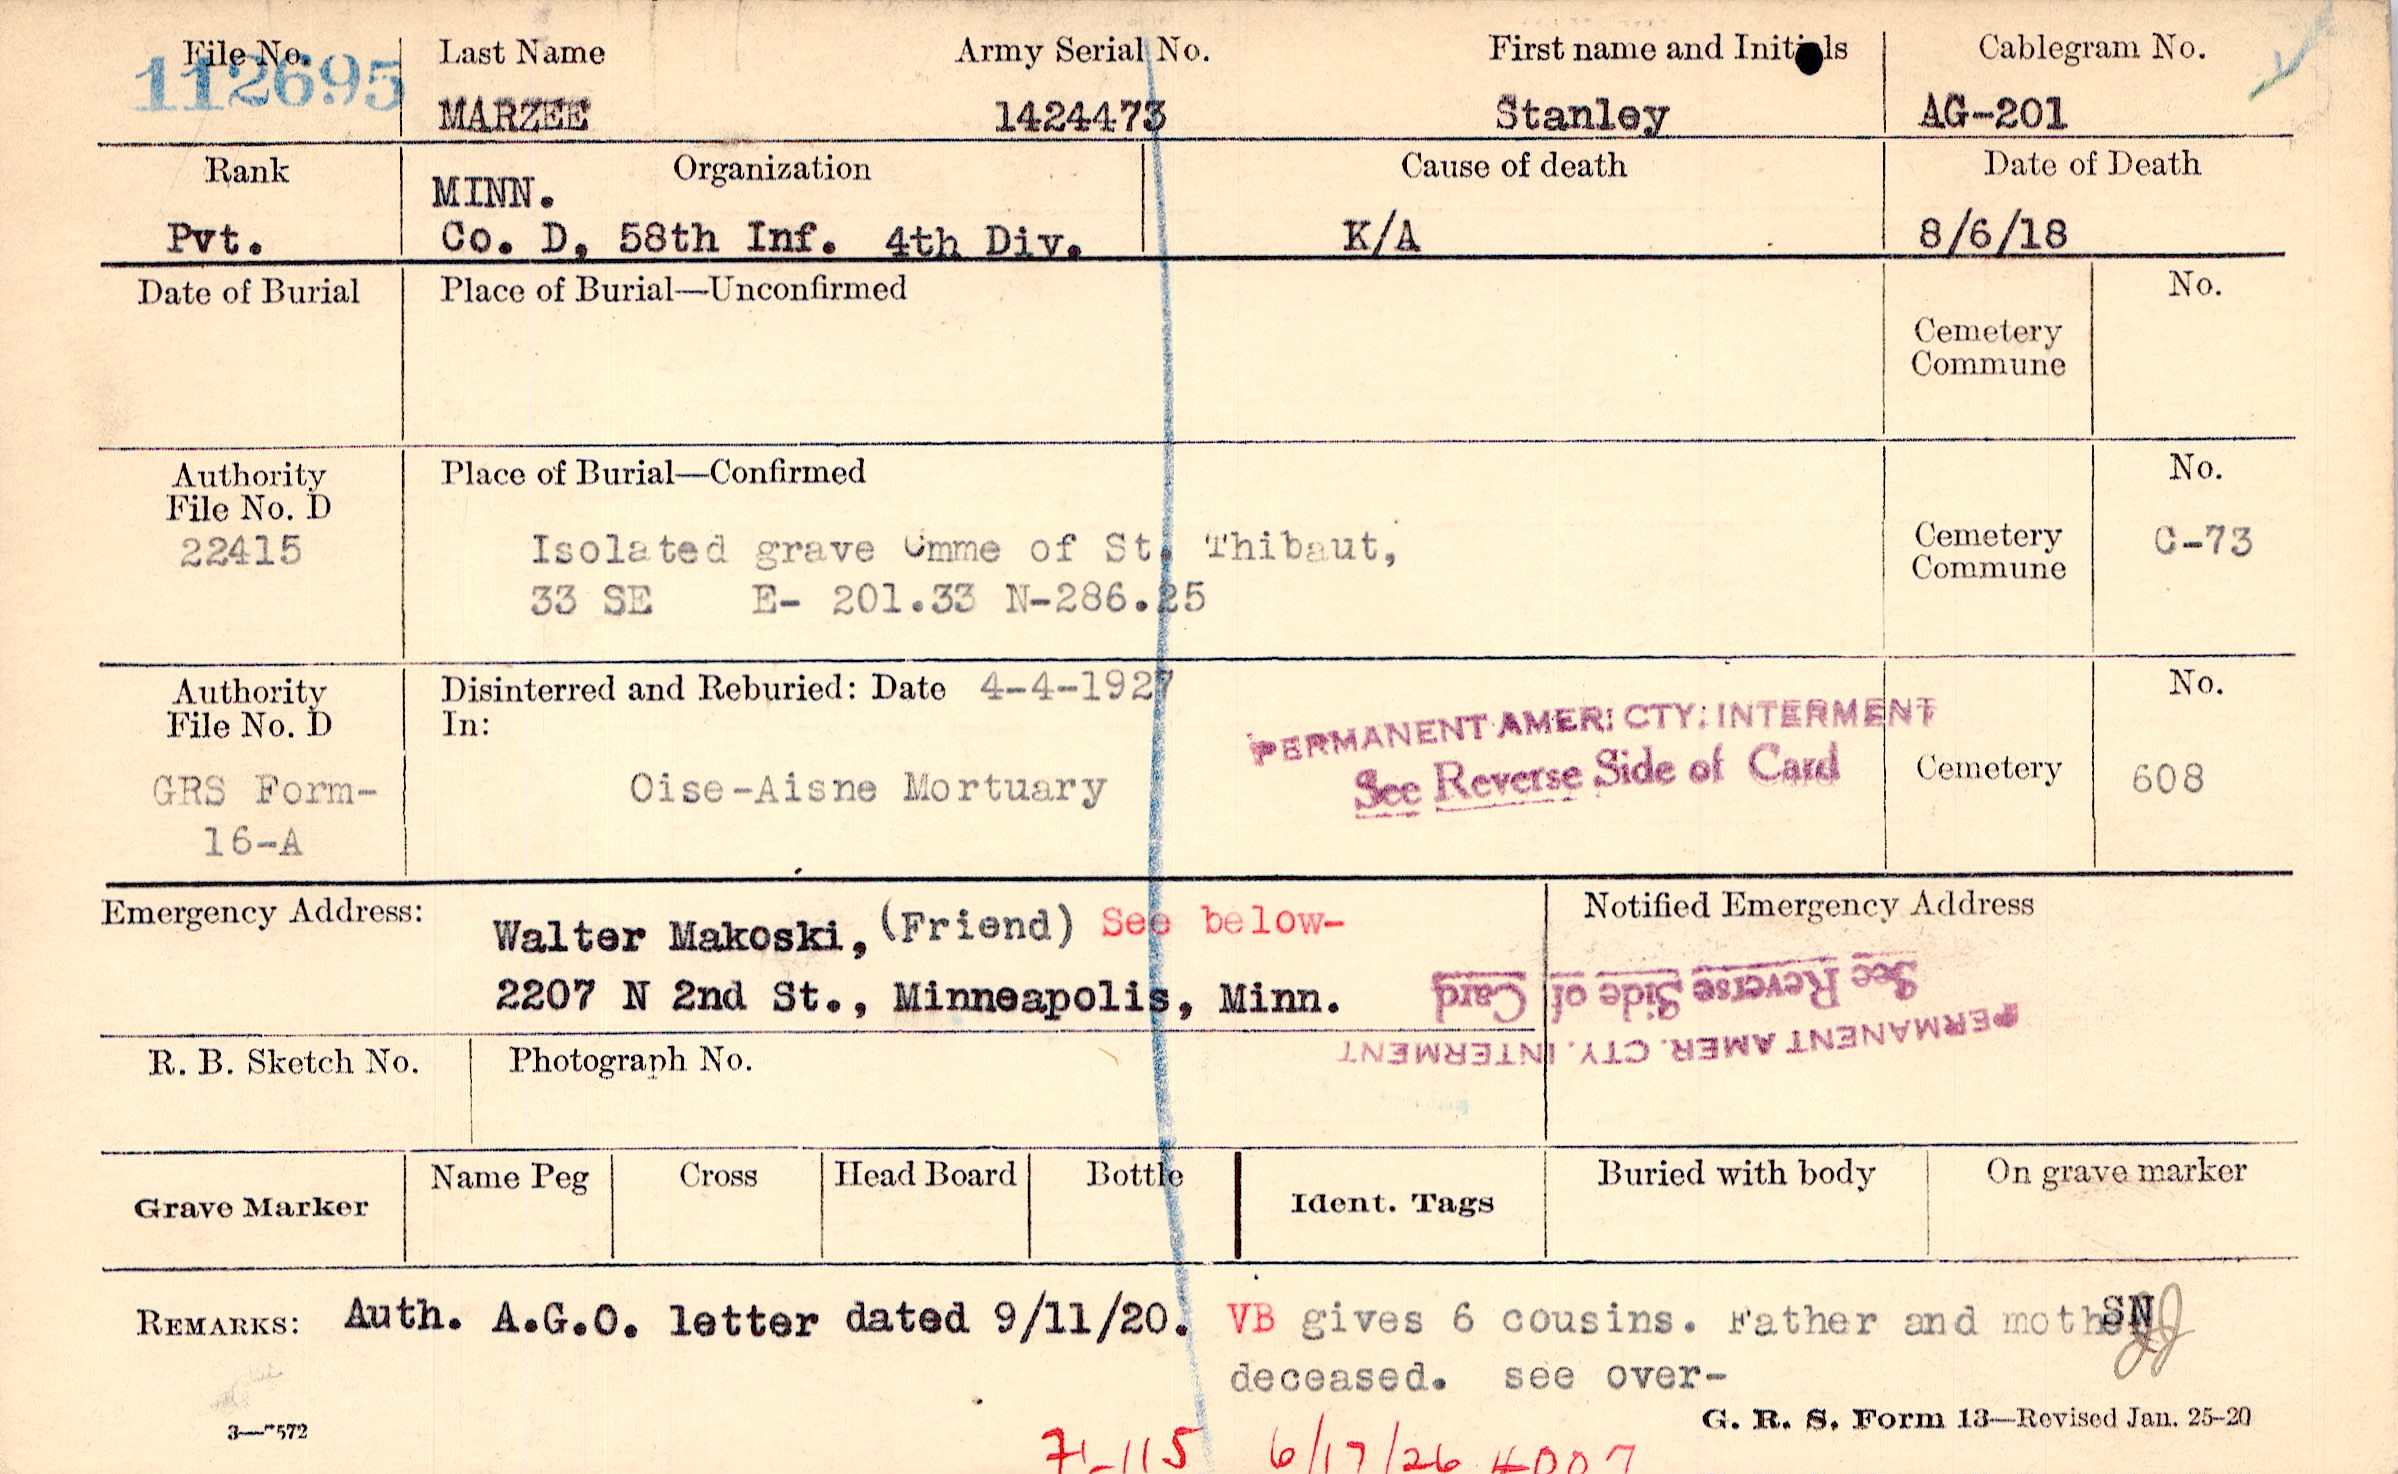 File No. Last Name Army Serial No. First name and Initials Cablegram No.
112695 MARZEE 1424473 Stanley AG-201
Rank Organization Cause of death Date of Death
MINN.
Pvt. Co. D, 58th Inf. 4th Div. K/A 8/6/18
Date of Burial Place of Burial—Unconfirmed No.
Cemetery
Commune
Authority Place of Burial—Confirmed No.
File No. D
22415 Isolated grave Cmme of St. Thibaut, Cemetery C-73
Commune
33 SE E- 201.33 N-286.25
Authority Disinterred and Reburied: Date 4-4-1927 No.
File No. D In:
PERMANENT AMER. CTY. INTERMENT
See Reverse Side of Card
GRS Form- Oise-Aisne Mortuary Cemetery 608
16-A
Emergency Address: Notified Emergency Address
Walter Makoski, (Friend) See below-
2207 N 2nd St., Minneapolis, Minn.
See Reverse Side of Card
PERMANENT AMER. CTY. INTERMENT
R. B. Sketch No. Photograph No.
Grave Marker Name Peg Cross Head Board Bottle Ident. Tags Buried with body On grave marker
REMARKS: Auth. A.G.O. letter dated 9/11/20. VB gives 6 cousins. Father and mother SN
deceased. see over-
G. R. S. Form 13—Revised Jan. 25-20
3—7572
6/17/26